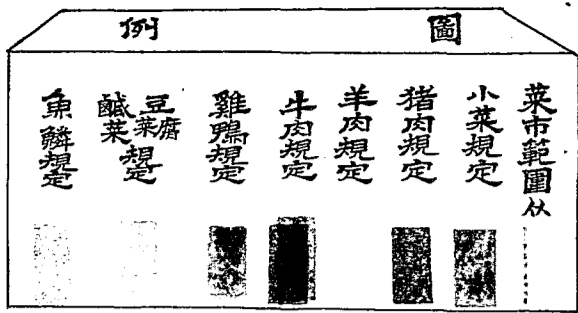 圖例
菜市範圍
小菜規定
猪肉規定
羊肉規定
牛肉規定
雞鴨規定
豆腐菜規定
鹹菜
魚鱗規定